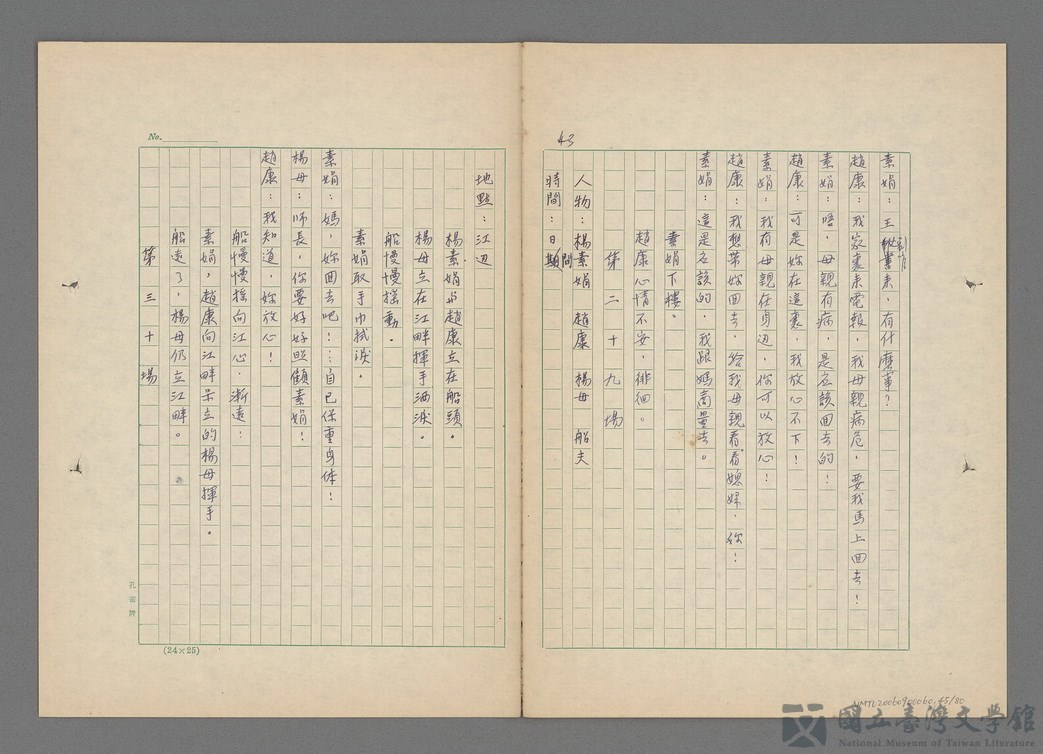 43
素娟：王副官来，有什麼事？
趙康：我家裏来電報，我母親病危，要我馬上回去！
素娟：唔，母親有病，是应該回去的！
趙康：可是妳在這裏，我放心不下！
素娟：我有母親在身边，你可以放心！
趙康：我想带妳回去，給我母親看看媳婦，你！
素娟：這是应該的，我跟媽商量去。
素娟下樓。
趙康心情不安，徘徊。
第二十九場
人物：楊素娟　趙康　楊母　船夫
時間：日間
地點：江边
楊素娟与趙康立在船頭。
楊母立在江畔揮手洒淚。
船慢慢搖動。
素娟取手巾拭淚。
素娟：媽，妳回去吧！…自已保重身体！
楊母：师長，你要好好照顧素娟！
趙康：我知道，妳放心！
船慢慢搖向江心，漸遠：
素娟，趙康向江畔呆立的楊母揮手。
船遠了，楊母仍立江畔。
第三十場
No.
孔雀牌
(24×25)
NMTL20060900060.45/80
國立臺灣文學館
National Museum of Taiwan Literature